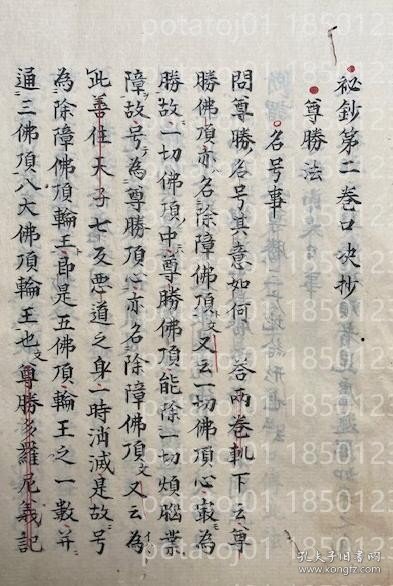 祕鈔第二卷口决抄
尊勝法
名号事
問尊勝名号其意如何 答兩卷軌下云尊
勝佛頂亦名除障佛頂文又云一切佛頂心最為
勝故一切佛頂中尊勝佛頂能除一切煩腦業
障故号為尊勝佛頂心亦名除障佛頂文又云為
此善住天子七反悪道之身一時消滅是故号
為除障佛頂輪王即是五佛頂輪王之一数并
通三佛頂八大佛頂輪王也文尊勝多羅尼義記
potatoj01 1850123
孔夫子旧书网